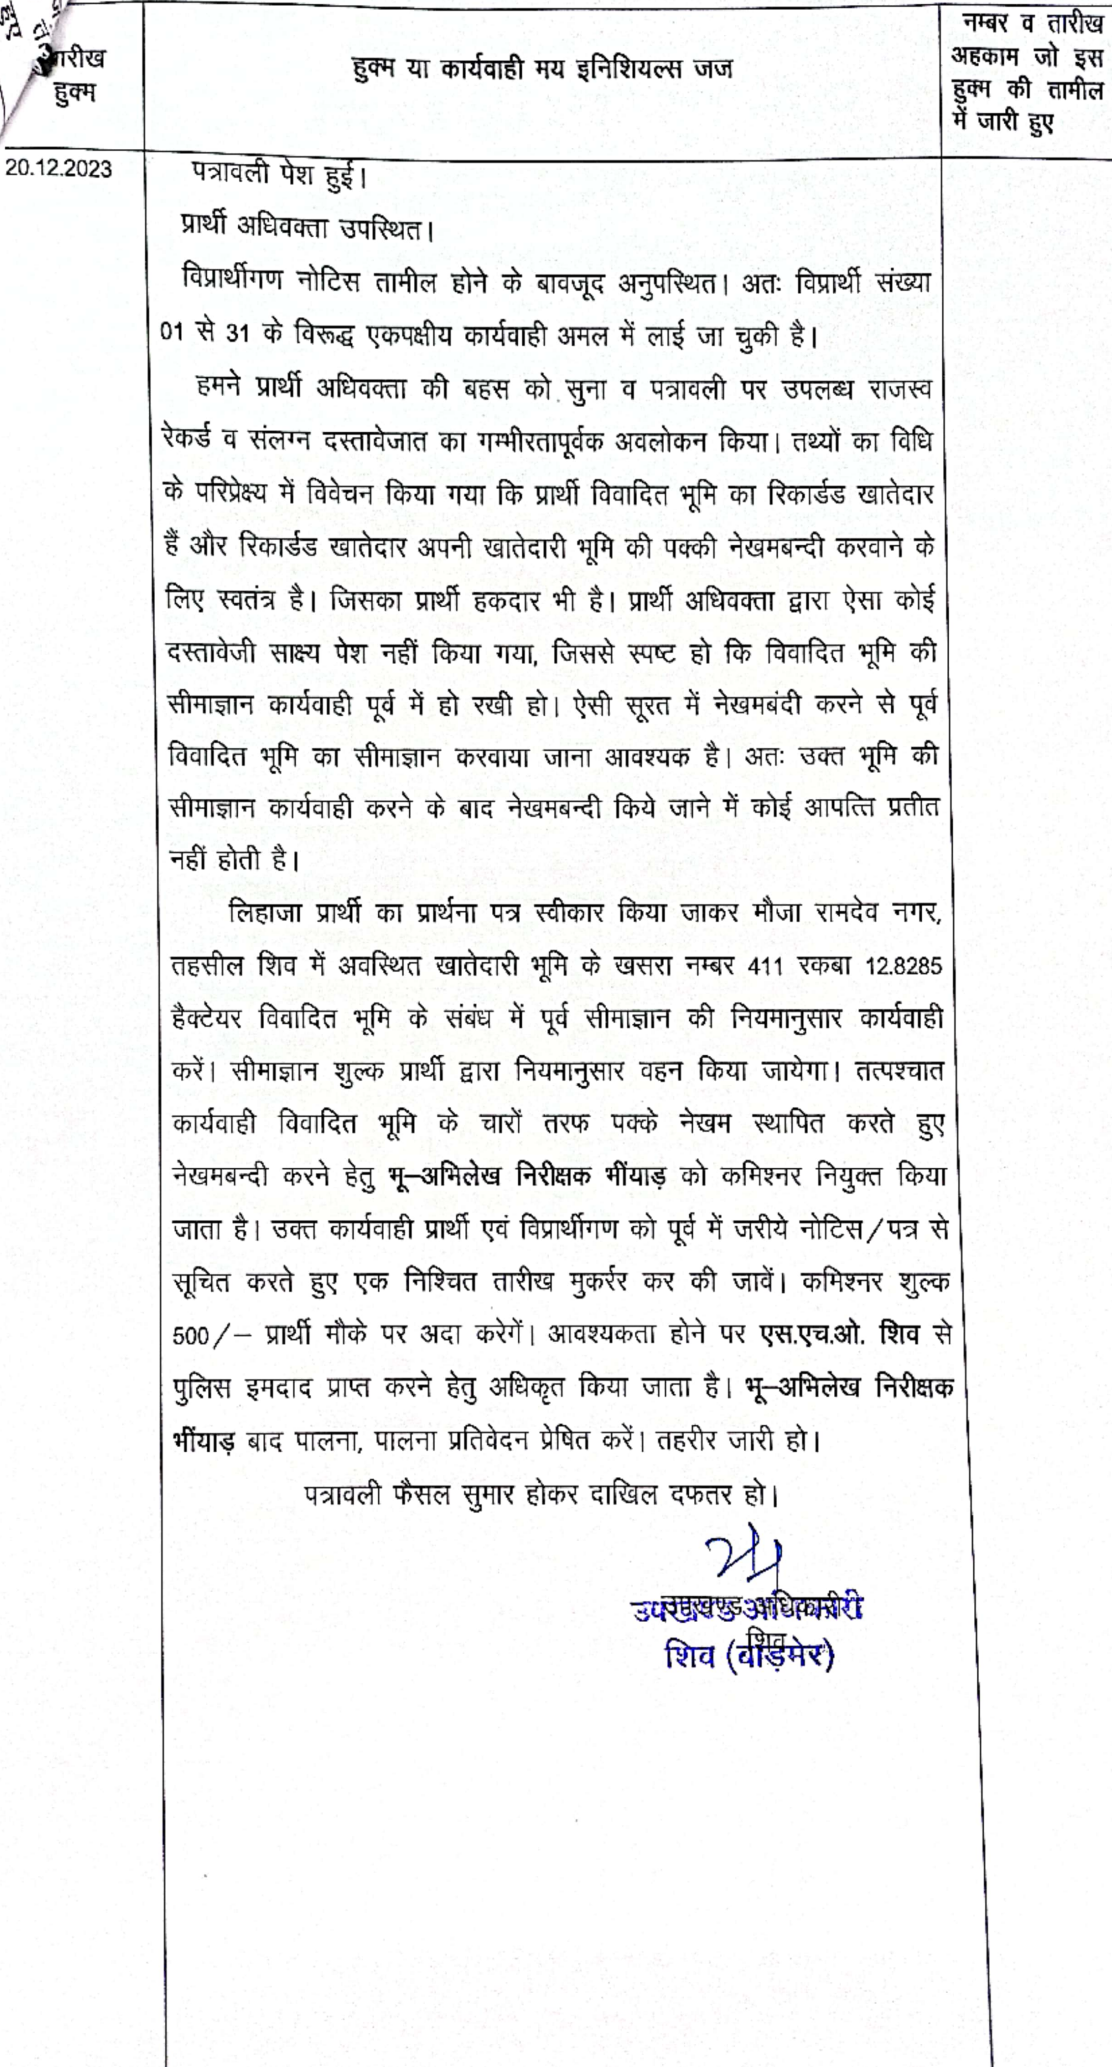 तारीख
हुक्म
हुक्म या कार्यवाही मय इनिशियल्स जज
नम्बर व तारीख
अहकाम जो इस
हुक्म की तामील
में जारी हुए
20.12.2023
पत्रावली पेश हुई।
प्रार्थी अधिवक्ता उपस्थित।
विप्रार्थीगण नोटिस तामील होने के बावजूद अनुपस्थित। अतः विप्रार्थी संख्या
01 से 31 के विरूद्ध एकपक्षीय कार्यवाही अमल में लाई जा चुकी है।
हमने प्रार्थी अधिवक्ता की बहस को सुना व पत्रावली पर उपलब्ध राजस्व
रेकर्ड व संलग्न दस्तावेजात का गम्भीरतापूर्वक अवलोकन किया। तथ्यों का विधि
के परिप्रेक्ष्य में विवेचन किया गया कि प्रार्थी विवादित भूमि का रिकार्डड खातेदार
हैं और रिकार्डड खातेदार अपनी खातेदारी भूमि की पक्की नेखमबन्दी करवाने के
लिए स्वतंत्र है। जिसका प्रार्थी हकदार भी है। प्रार्थी अधिवक्ता द्वारा ऐसा कोई
दस्तावेजी साक्ष्य पेश नहीं किया गया, जिससे स्पष्ट हो कि विवादित भूमि की
सीमाज्ञान कार्यवाही पूर्व में हो रखी हो। ऐसी सूरत में नेखमबंदी करने से पूर्व
विवादित भूमि का सीमाज्ञान करवाया जाना आवश्यक है। अतः उक्त भूमि की
सीमाज्ञान कार्यवाही करने के बाद नेखमबन्दी किये जाने में कोई आपत्ति प्रतीत
नहीं होती है।
लिहाजा प्रार्थी का प्रार्थना पत्र स्वीकार किया जाकर मौजा रामदेव नगर,
तहसील शिव में अवस्थित खातेदारी भूमि के खसरा नम्बर 411 रकबा 12.8285
हैक्टेयर विवादित भूमि के संबंध में पूर्व सीमाज्ञान की नियमानुसार कार्यवाही
करें। सीमाज्ञान शुल्क प्रार्थी द्वारा नियमानुसार वहन किया जायेगा। तत्पश्चात
कार्यवाही विवादित भूमि के चारों तरफ पक्के नेखम स्थापित करते हुए
नेखमबन्दी करने हेतु भू–अभिलेख निरीक्षक भींयाड़ को कमिश्नर नियुक्त किया
जाता है। उक्त कार्यवाही प्रार्थी एवं विप्रार्थीगण को पूर्व में जरीये नोटिस/पत्र से
सूचित करते हुए एक निश्चित तारीख मुकर्रर कर की जावें। कमिश्नर शुल्क
500/– प्रार्थी मौके पर अदा करेगें। आवश्यकता होने पर एस.एच.ओ. शिव से
पुलिस इमदाद प्राप्त करने हेतु अधिकृत किया जाता है। भू–अभिलेख निरीक्षक
भींयाड़ बाद पालना, पालना प्रतिवेदन प्रेषित करें। तहरीर जारी हो।
पत्रावली फैसल सुमार होकर दाखिल दफतर हो।
उपखण्ड अधिकारी
शिव
उपखण्ड अधिकारी
शिव (बाड़मेर)